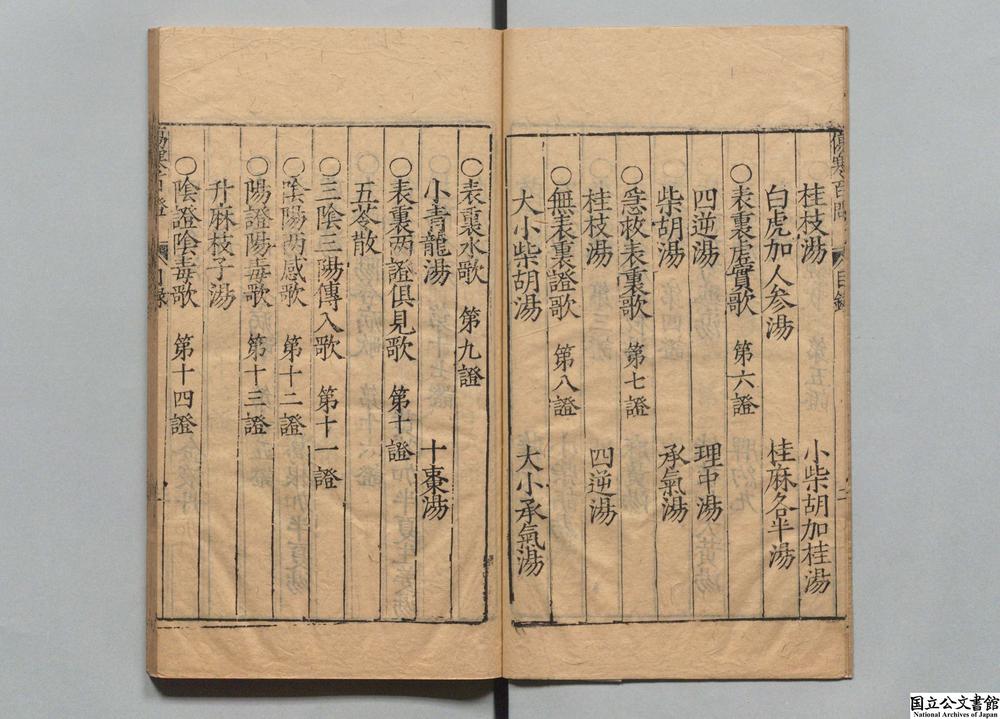 桂枝湯 小柴胡加桂湯
白虎加人参湯 桂麻各半湯
○表裏虛實歌 第六證
四逆湯 理中湯
柴胡湯 承氣湯
○急救表裏歌 第七證
桂枝湯 四逆湯
○無表裏證歌 第八證
大小柴胡湯 大小承氣湯
○表裏水歌 第九證
小青龍湯 十棗湯
○表裏两證俱見歌 第十證
五苓散
○三陰三陽傳入歌 第十一證
○陰陽两感歌 第十二證
○陽證陽毒歌 第十三證
升麻枝子湯
○陰證陰毒歌 第十四證
目錄
国立公文書館
National Archives of Japan